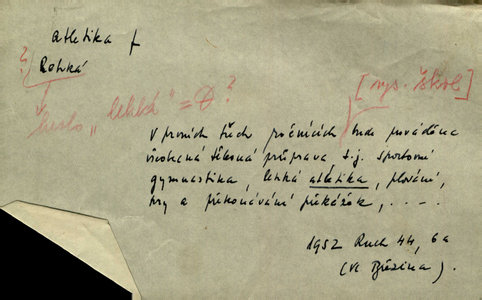 atletika f
? lehká
heslo „lehká" = Ø ?
[vys. škol]
V prvních třech ročnících bude prováděna
všeobecná tělesná průprava, t. j. sportovní
gymnastika, lehká atletika, plování,
hry a překonávání překážek, . - - .
1952 Ruch 44, 6a
(Vl. Březina).